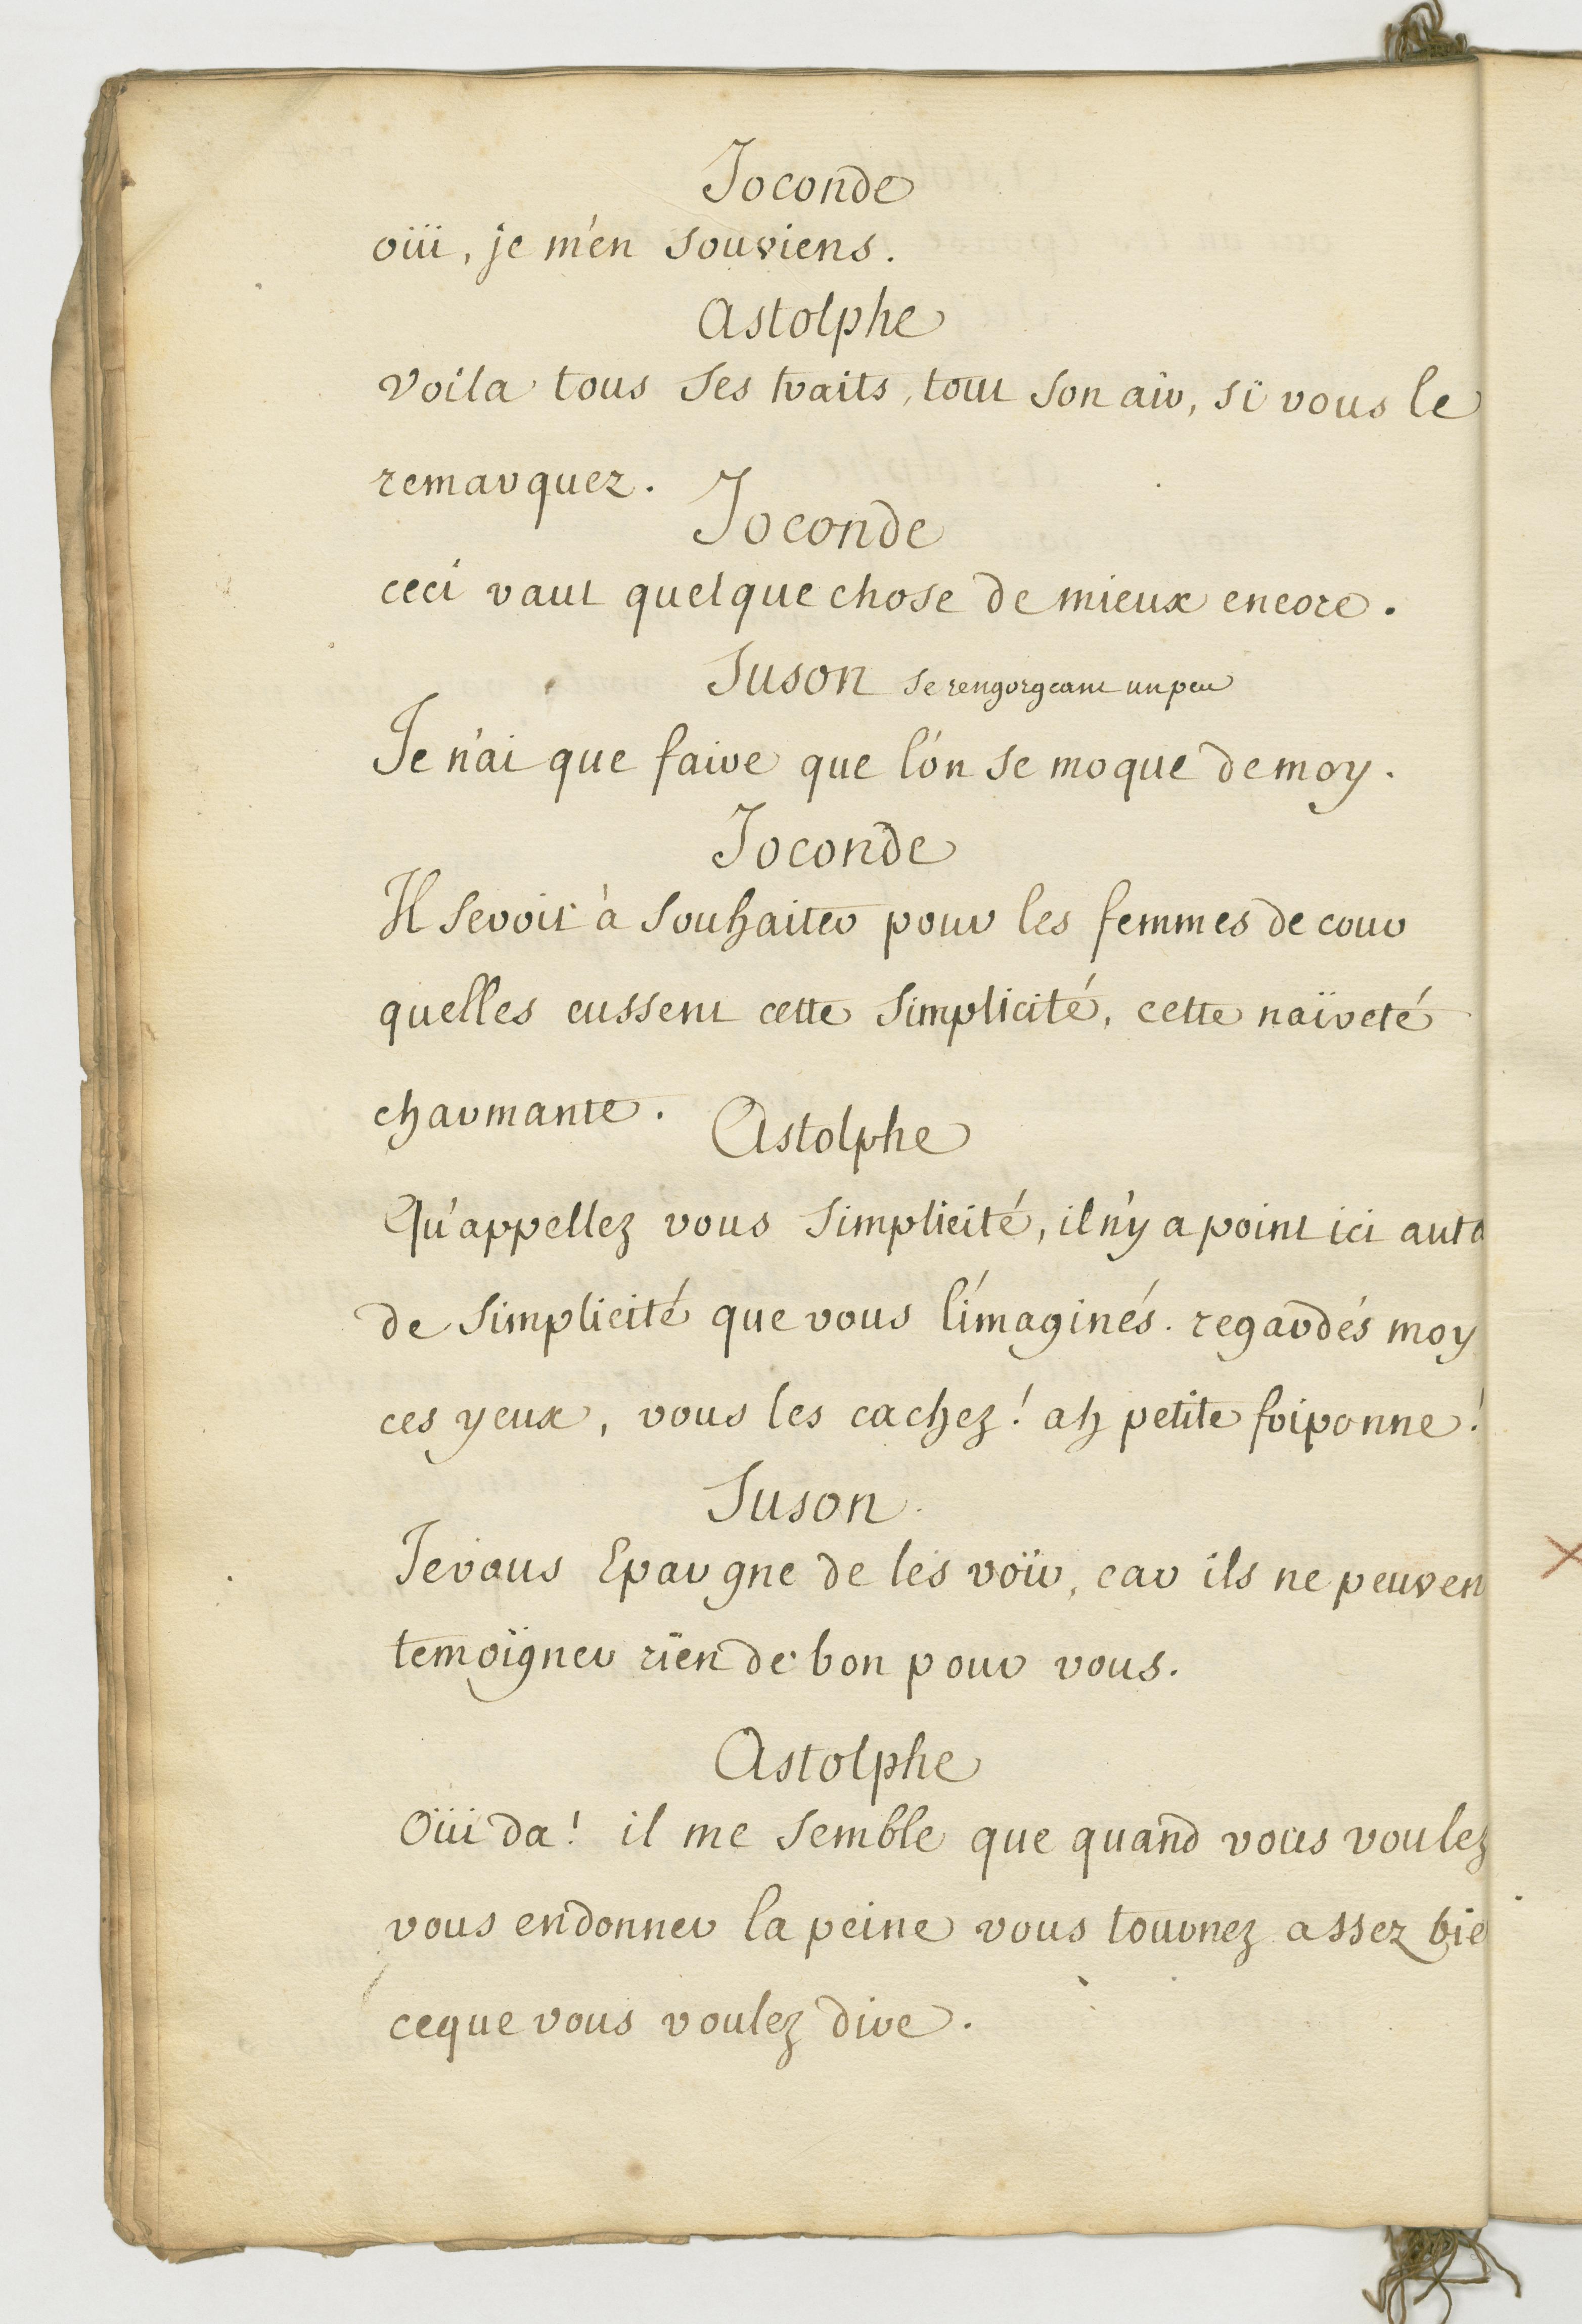 Joconde
oüi, je m'en souviens.
Astolphe
Voila tous ses traits, tout son air, si vous le
remarquez.
Joconde
ceci vaut quelque chose de mieux encore.
Suson se rengorgeant un peu
Je n'ai que faire que l'on se moque de moy.
Joconde
Il seroit à souhaiter pour les femmes de cour
quelles eussent cette simplicité, cette naïveté
charmante.
Astolphe
Qu'appellez vous simplicité, il n'y a point ici auta
de simplicité que vous l'imaginés. regardés moy
ces yeux, vous les cachez! ah petite friponne!
Suson
Je vous Epargne de les voïr, car ils ne peuven
temoïgner rïen de bon pour vous.
Astolphe
Oüi da! il me semble que quand vous voulez
vous en donner la peine vous tournez assez bie
ce que vous voulez dire.